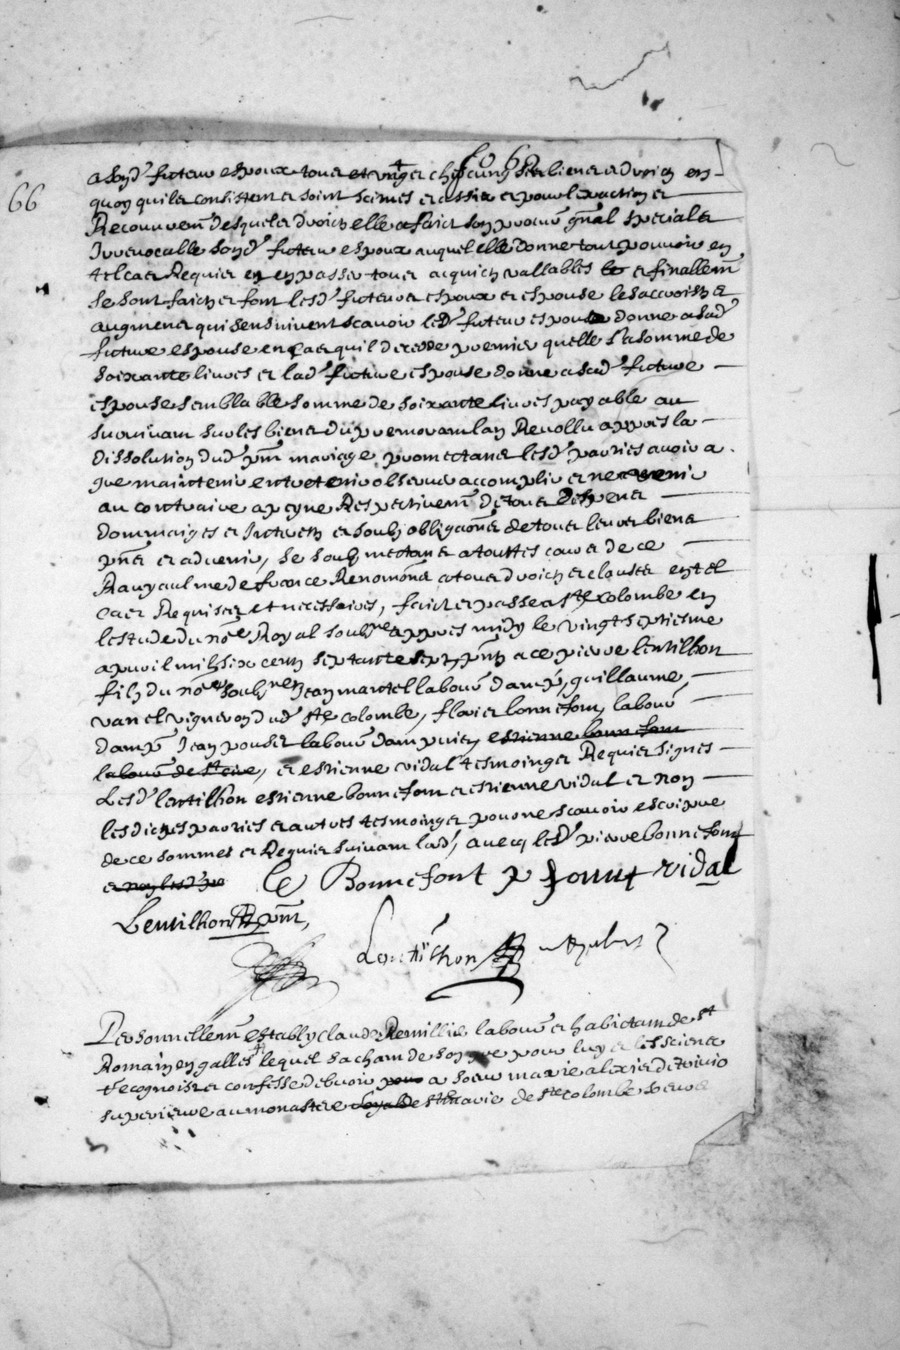 66
a sond' futeur espoux tous et ungz chescuns ses biens et droictz en
quoy quilz consistent et soint scitues et assis et pour lexaction et
Recouvrem' desquelz droictz elle a faict son procur' gñal special et
Irrevocalle sond' futeur espoux auquel elle donne tout pouvoir en
tel cas Requis et en passer tous acquictz vallables et finallem'
se sont faictz et font lesd' futeurs espoux et espouse les accroistz et
augmens qui sensuivent scavoir led' futeur espoux donne a sad'
future espouse en cas quil decede premier quelle la somme de
soixante livres et lad' future espouse donne a sad' future
espouse semblable somme de soixante livres payable au
survivam sur les biens du premoram lan Revollu appres la
dissolution dud' pnt mariage promectans lesd' parties avoir a
gre maintenir entretenir observer accomplir et ne venir
au contraire a peyne Respectivem' de tous despens
dommaiges et Interestz et soubz obligaons de tous leurs biens
pñs et advenir, se soubzmectans a touttes cours de ce
Rauyaulme de france Renomons a tous droictz et clauses en tel
cas Requises et necessaires, faict et passe a ste colombe en
lestude du no^re Royal soub^ne appres midy le vingt septiesme
apvril mil six centz septante sept, pntz a ce pierre lentilhon
filz du no^re soub^ne Jean martel labour' damp', guillaume
vanel vigneron dud' ste colombe, flovier bonnefont, labour'
damp' Jean poudet labour' dampvier, estienne bonnefont
labour' de st cire, et estienne vidal tesmoingz Requis signes
Lesd' lentilhon estienne bonnefont et estienne vidal et non
les dictes parties et autres tesmoingz pour ne scavoir escripre
de ce sommes et Requis suivam lad', avecq led' pierre bonnefont
et non lesd' pr Bonnefont p font vidal
Lentilhon pnt,
Lentilhon
Personnellem' estably claude Remillie labour' et habictam de st
Romain en galles lequel sacham de son gre pour luy et les sciens
Recognoist et confesse debvoir pour a soeur marie alexis de
superieure au monastere Royal de ste marie de ste colombe